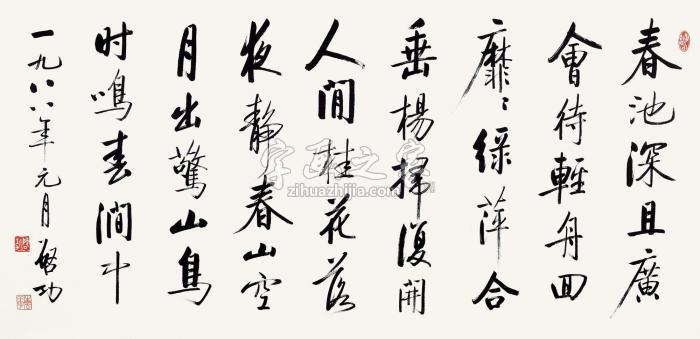 春池深且廣
會待輕舟回
靡靡綠萍合
垂楊掃復開
人閒桂花落
夜靜春山空
月出驚山鳥
时鳴春澗中
一九八八年元月啓功
字画之家
zihuazhijia.com